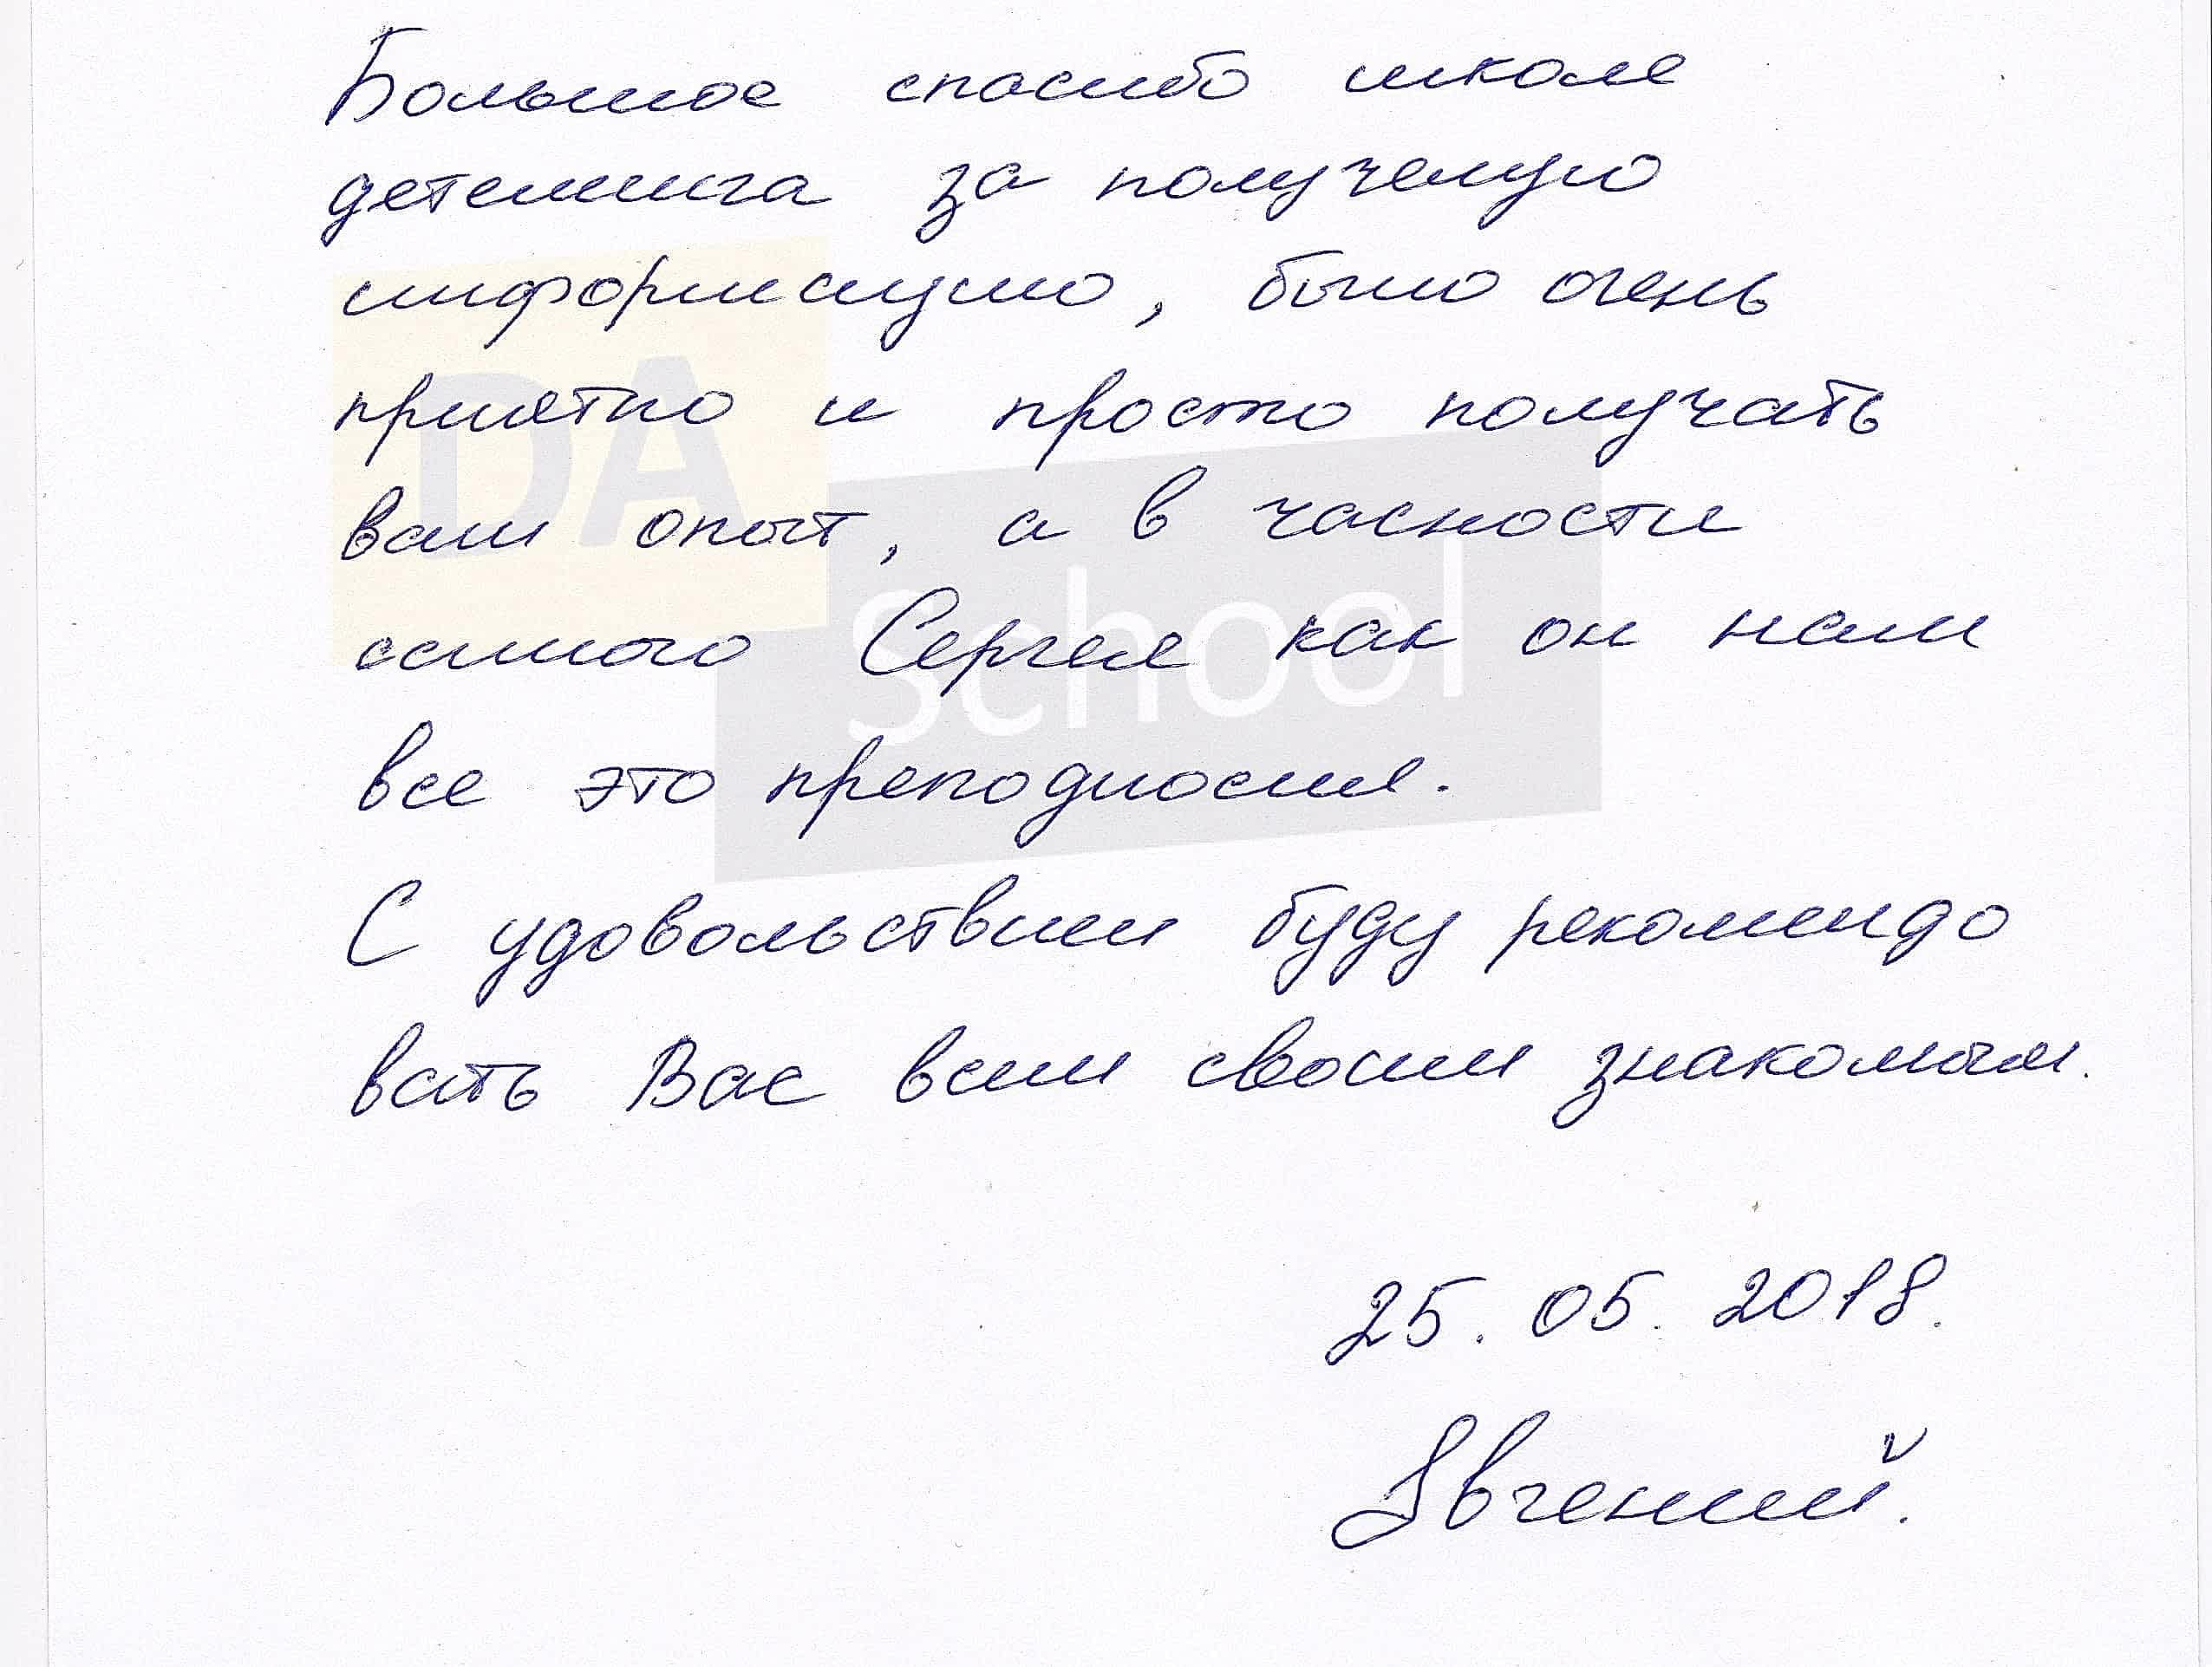 Большое спасибо школе
детелинга за получемую
информацию, было очень
приятно и просто получать
ваш опыт, а в часности
самого Сергея как он нам
все это преподносил.
С удовольствием буду рекомендо
вать Вас всем своим знакомым.
25.05.2018.
Евгений.
DA
school